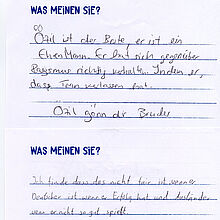 WAS MEINEN SIE?
Özil ist der Beste, er ist ein
EhrenMann. Er hat sich gegenüber
Rassismus richtig verhalten. Indem er,
das Team verlassen hat.
Özil gönn dir Bruder
WAS MEINEN SIE?
Ich finde dass das nicht fair ist wenn er
Deutscher ist wenn er Erfolg hat und Ausländer
wenn er nicht so gut spielt.